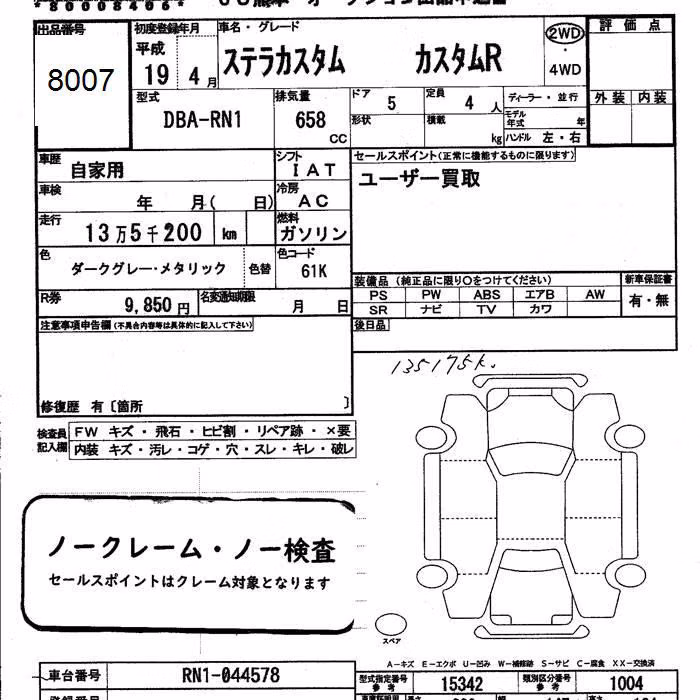 *80008406*
出品番号 初度登録年月 車名・グレード 2WD 評価点
平成
8007 19 4月 ステラカスタム カスタムR ・
4WD
型式 排気量 ドア 5 定員 4人 ディーラー・並行 外装 内装
DBA-RN1 658 cc 形状 積載 kg モデル年式 年
ハンドル 左・右
車歴 自家用 シフト IAT セールスポイント(正常に機能するものに限ります)
車検 年 月( 日) 冷房 AC ユーザー買取
走行 13万5千200 km 燃料 ガソリン
色 ダークグレー・メタリック 色替 色コード 61K
装備品 (純正品に限り○をつけてください) 新車保証書
R券 9,850円 名変通知期限 月 日 PS PW ABS エアB AW 有・無
SR ナビ TV カワ
注意事項申告欄(不具合内容等は具体的に記入して下さい) 後日品
135175k.
修復歴 有〔箇所 〕
検査員記入欄 FW キズ・飛石・ヒビ割・リペア跡・×要
内装 キズ・汚レ・コゲ・穴・スレ・キレ・破レ
ノークレーム・ノー検査
セールスポイントはクレーム対象となります
スペア
A-キズ E-エクボ U-凹み W-補修跡 S-サビ C-腐食 XX-交換済
車台番号 RN1-044578 型式指定番号 参考 15342 類別区分番号 参考 1004